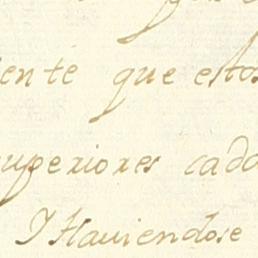 ente que estos
superiores cada
Y Haviendose